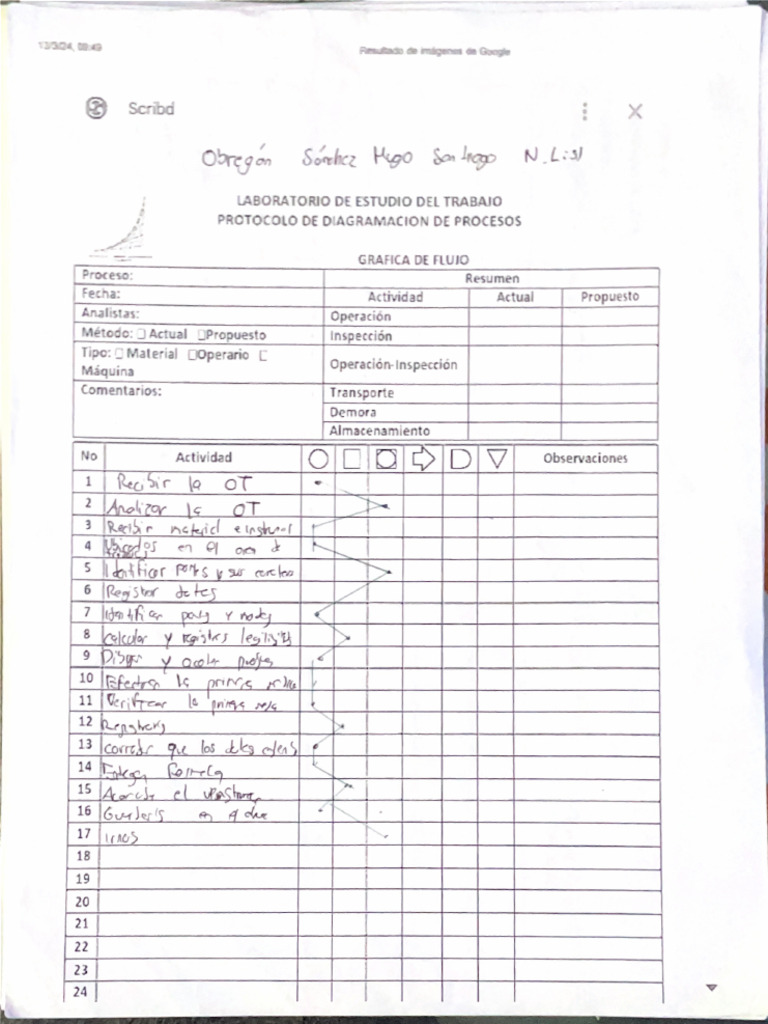 13/3/24, 09:49 Resultado de imágenes de Google
Scribd
Obregón Sánchez Hugo Santiago N.L:31
LABORATORIO DE ESTUDIO DEL TRABAJO
PROTOCOLO DE DIAGRAMACION DE PROCESOS
GRAFICA DE FLUJO
Proceso: Resumen
Fecha: Actividad Actual Propuesto
Analistas: Operación
Método: Actual Propuesto Inspección
Tipo: Material Operario
Máquina Operación-Inspección
Comentarios: Transporte
Demora
Almacenamiento
No Actividad Observaciones
1 Recibir la OT
2 Analizar la OT
3 Recibir material e
4 en el de
5 Identificar y sus
6 Registrar datos
7 Identificar y
8 Calcular y
9 y
10 Efectuar la primera
11 Verificar la primera
12
13 que los datos
14
15 el
16 en el
17
18
19
20
21
22
23
24